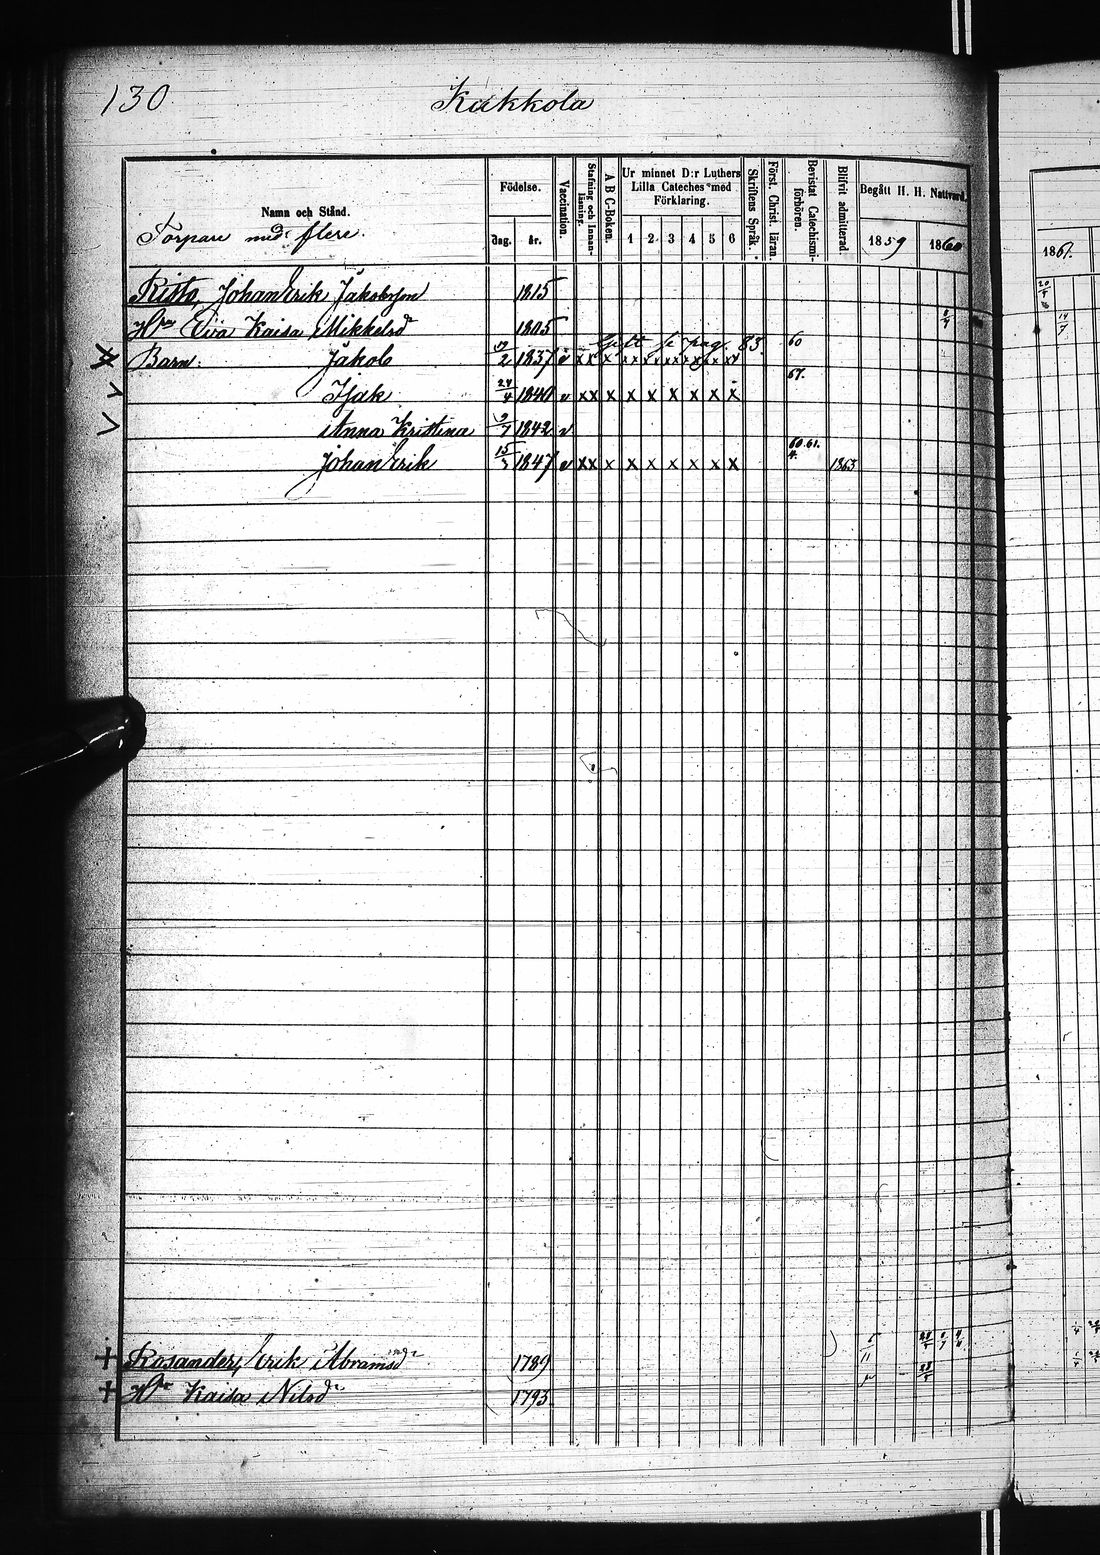 130 Kukkola
Namn och Stånd.
Torpare med flere.
Födelse.
dag. år.
Vaccination.
Stafning och Innan-läsning.
A B C-Boken.
Ur minnet D:r Luthers Lilla Cateches med Förklaring.
1 2 3 4 5 6
Skriftens Språk.
Först. Christ. läran.
Bevistat Catechismi-förhören.
Blifvit admitterad
Begått H. H. Nattvard.
1859 1860 1861.
Kisto, Johan Erik Jakobsson 1815
Hu Eva Kaisa Mikkelsd 1805
Barn: Jakob 2 1837 v xx x x x x x x x Gift se pag. 83. 60
Isak 24/4 1840 v xx x x x x x x x 67.
Anna Kristina 9/7 1842 v
Johan Erik 15/3 1847 v xx x x x x x x x 60.61. 1863
Rosander, Erik Abramsd 1789
Hu Kaisa Nilsd 1793